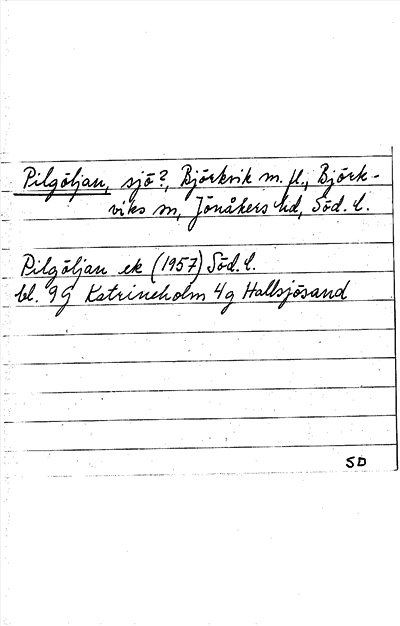 Pilgöljan, sjö?, Björkvik m. fl., Björk-
viks sn, Jönåkers hd, Söd. l.
Pilgöljan ek (1957) Söd. l.
bl. 9G Katrineholm 4g Hallsjösand
SD